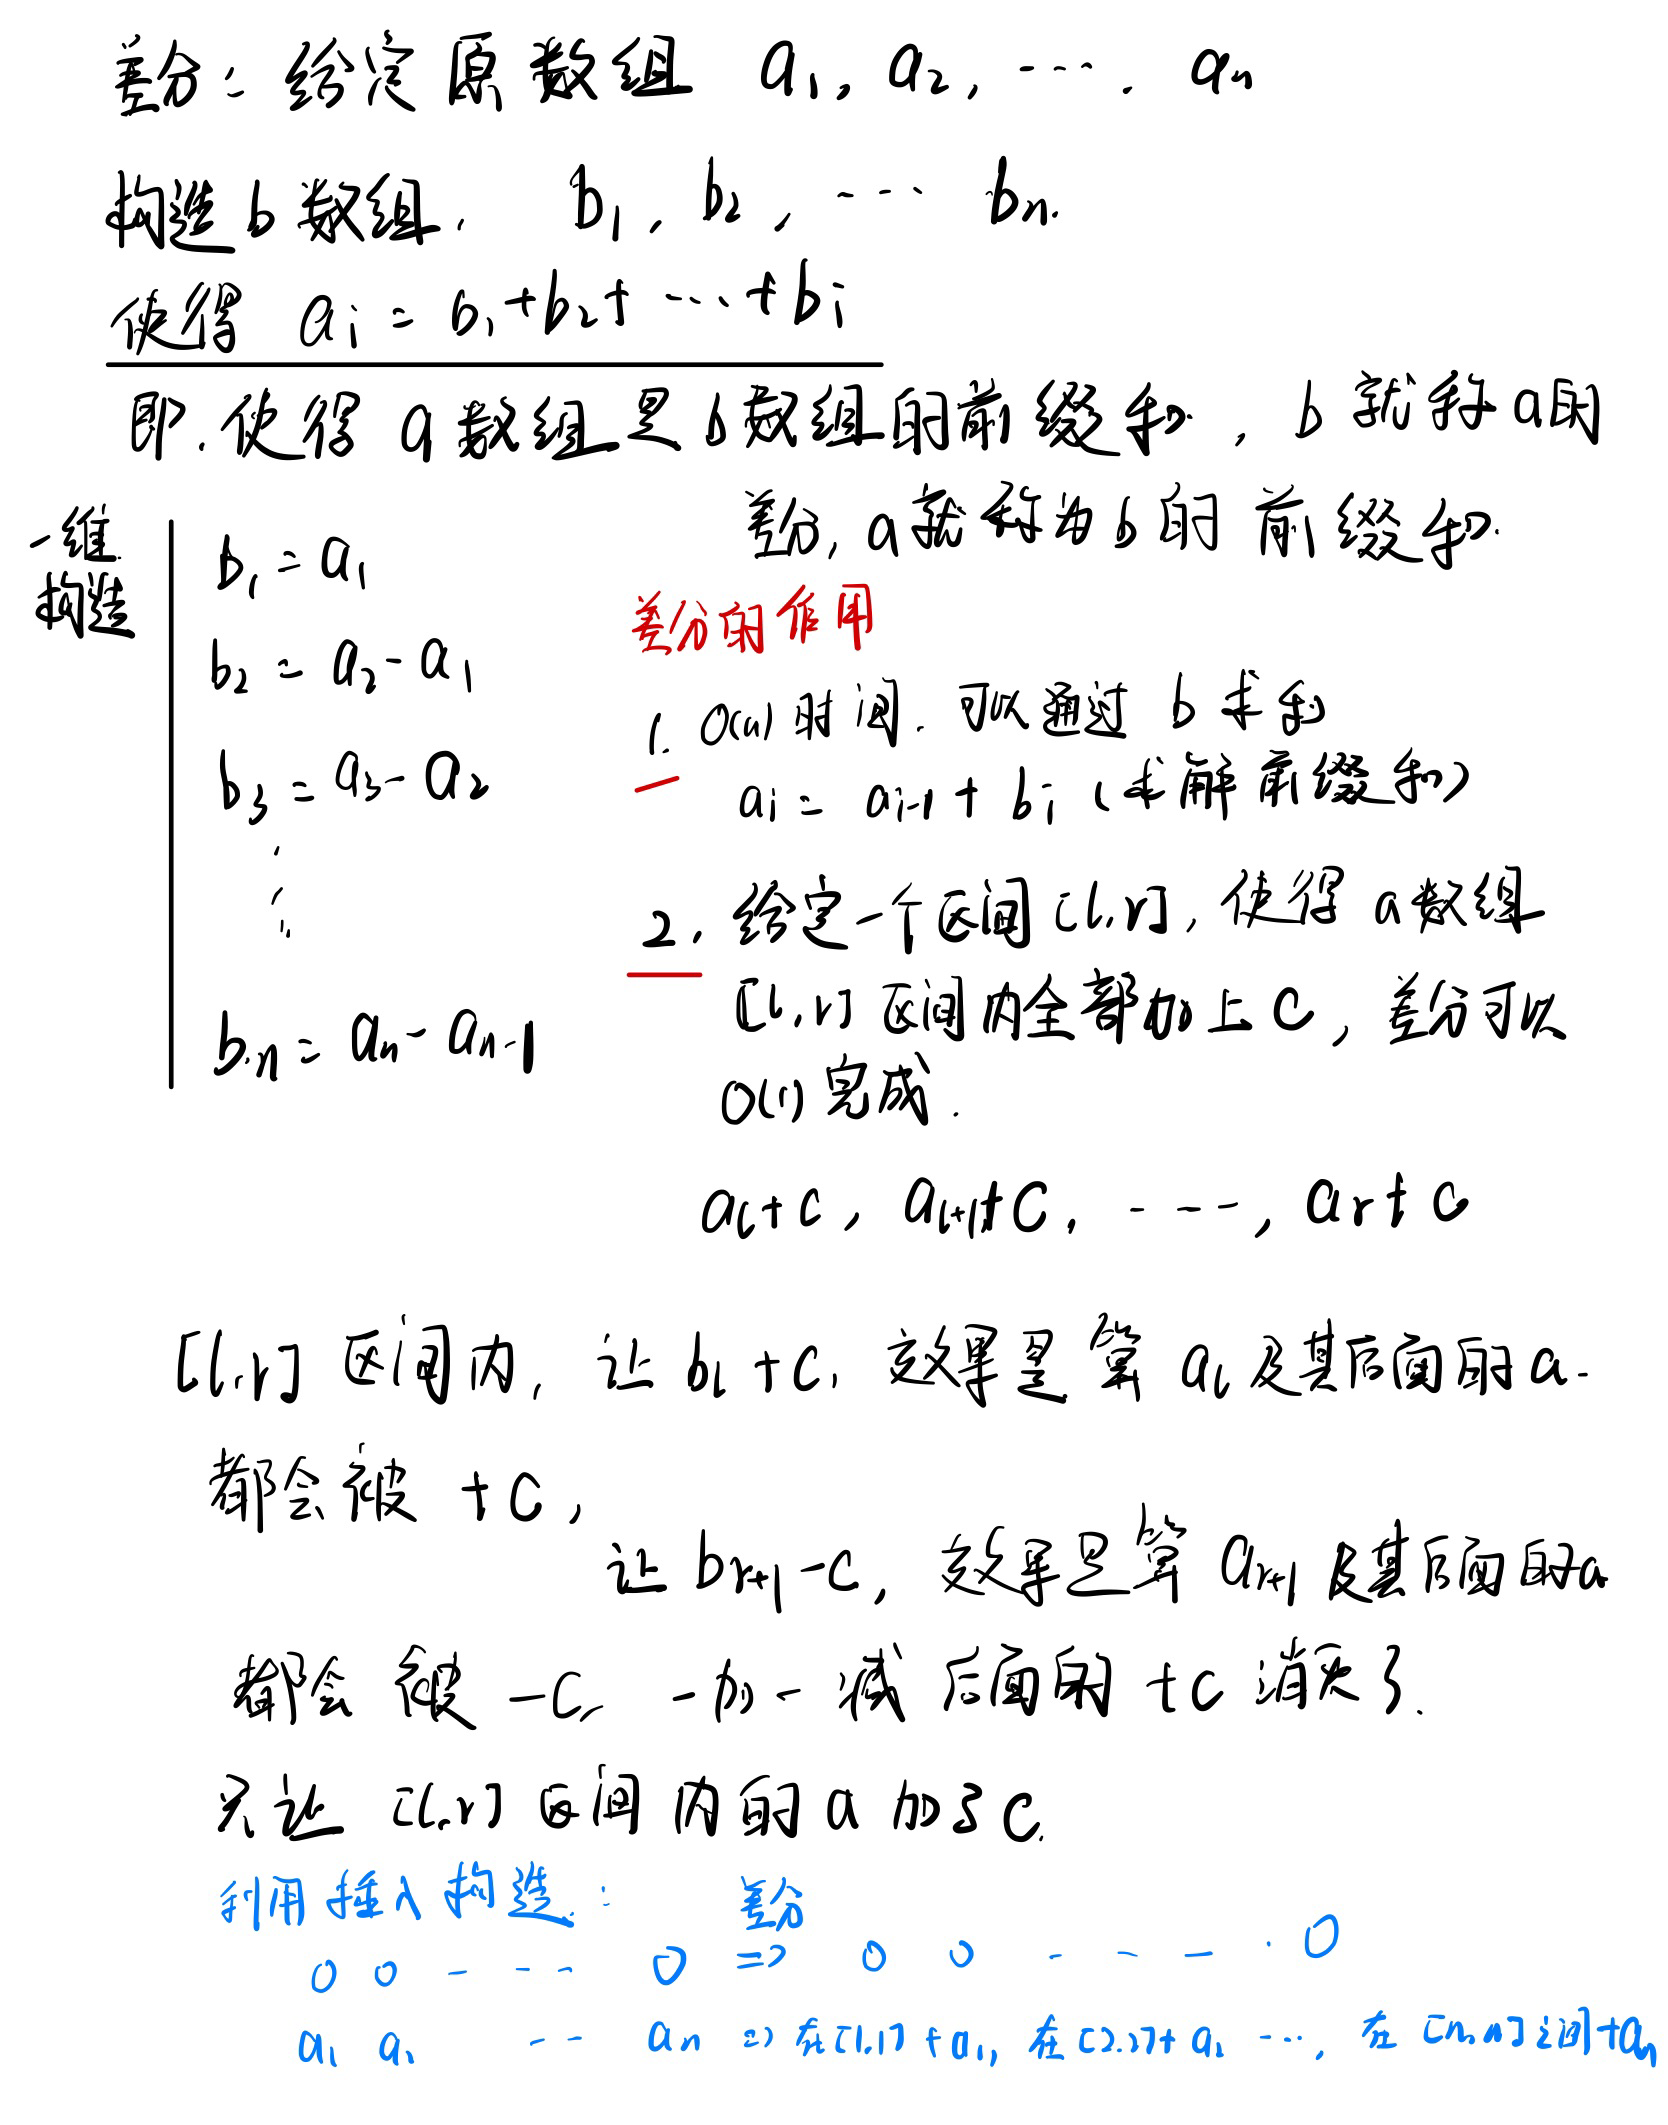 差分: 给定原数组 a₁, a₂, ···. aₙ
构造b数组. b₁, b₂, ··· bₙ.
使得 aᵢ = b₁+b₂+ ···+bᵢ
即.使得 a数组是b数组的前缀和. , b 就称a的
差分, a就称为b的 前缀和.
一维
构造
b₁ = a₁
b₂ = a₂-a₁
b₃ = a₃-a₂
bₙ = aₙ-aₙ₋₁
差分的作用
1. O(n) 时间. 可以通过 b 求和
aᵢ = aᵢ₋₁ + bᵢ (求解前缀和)
2. 给定一个区间[l,r], 使得 a数组
[l,r]区间内全部加上C, 差分可以
O(1)完成.
aₗ+c, aₗ₊₁+C, ----, aᵣ+c
[l,r] 区间内, 让 bₗ+c, 效果是算 aₗ及其后面的a.
都会被 +c,
让 bᵣ₊₁-c, 效果是算 aᵣ₊₁及其后面的a
都会被 -c, 一加一减后面的+c消失了.
只让 [l,r]区间内的a加了c.
利用插入构造: 差分
0 0 - - - - 0 => 0 0 - - - · 0
a₁ a₂ -- aₙ => 在[1,1]+a₁, 在[2,2]+a₂ ···, 在[n,n]之间+aₙ